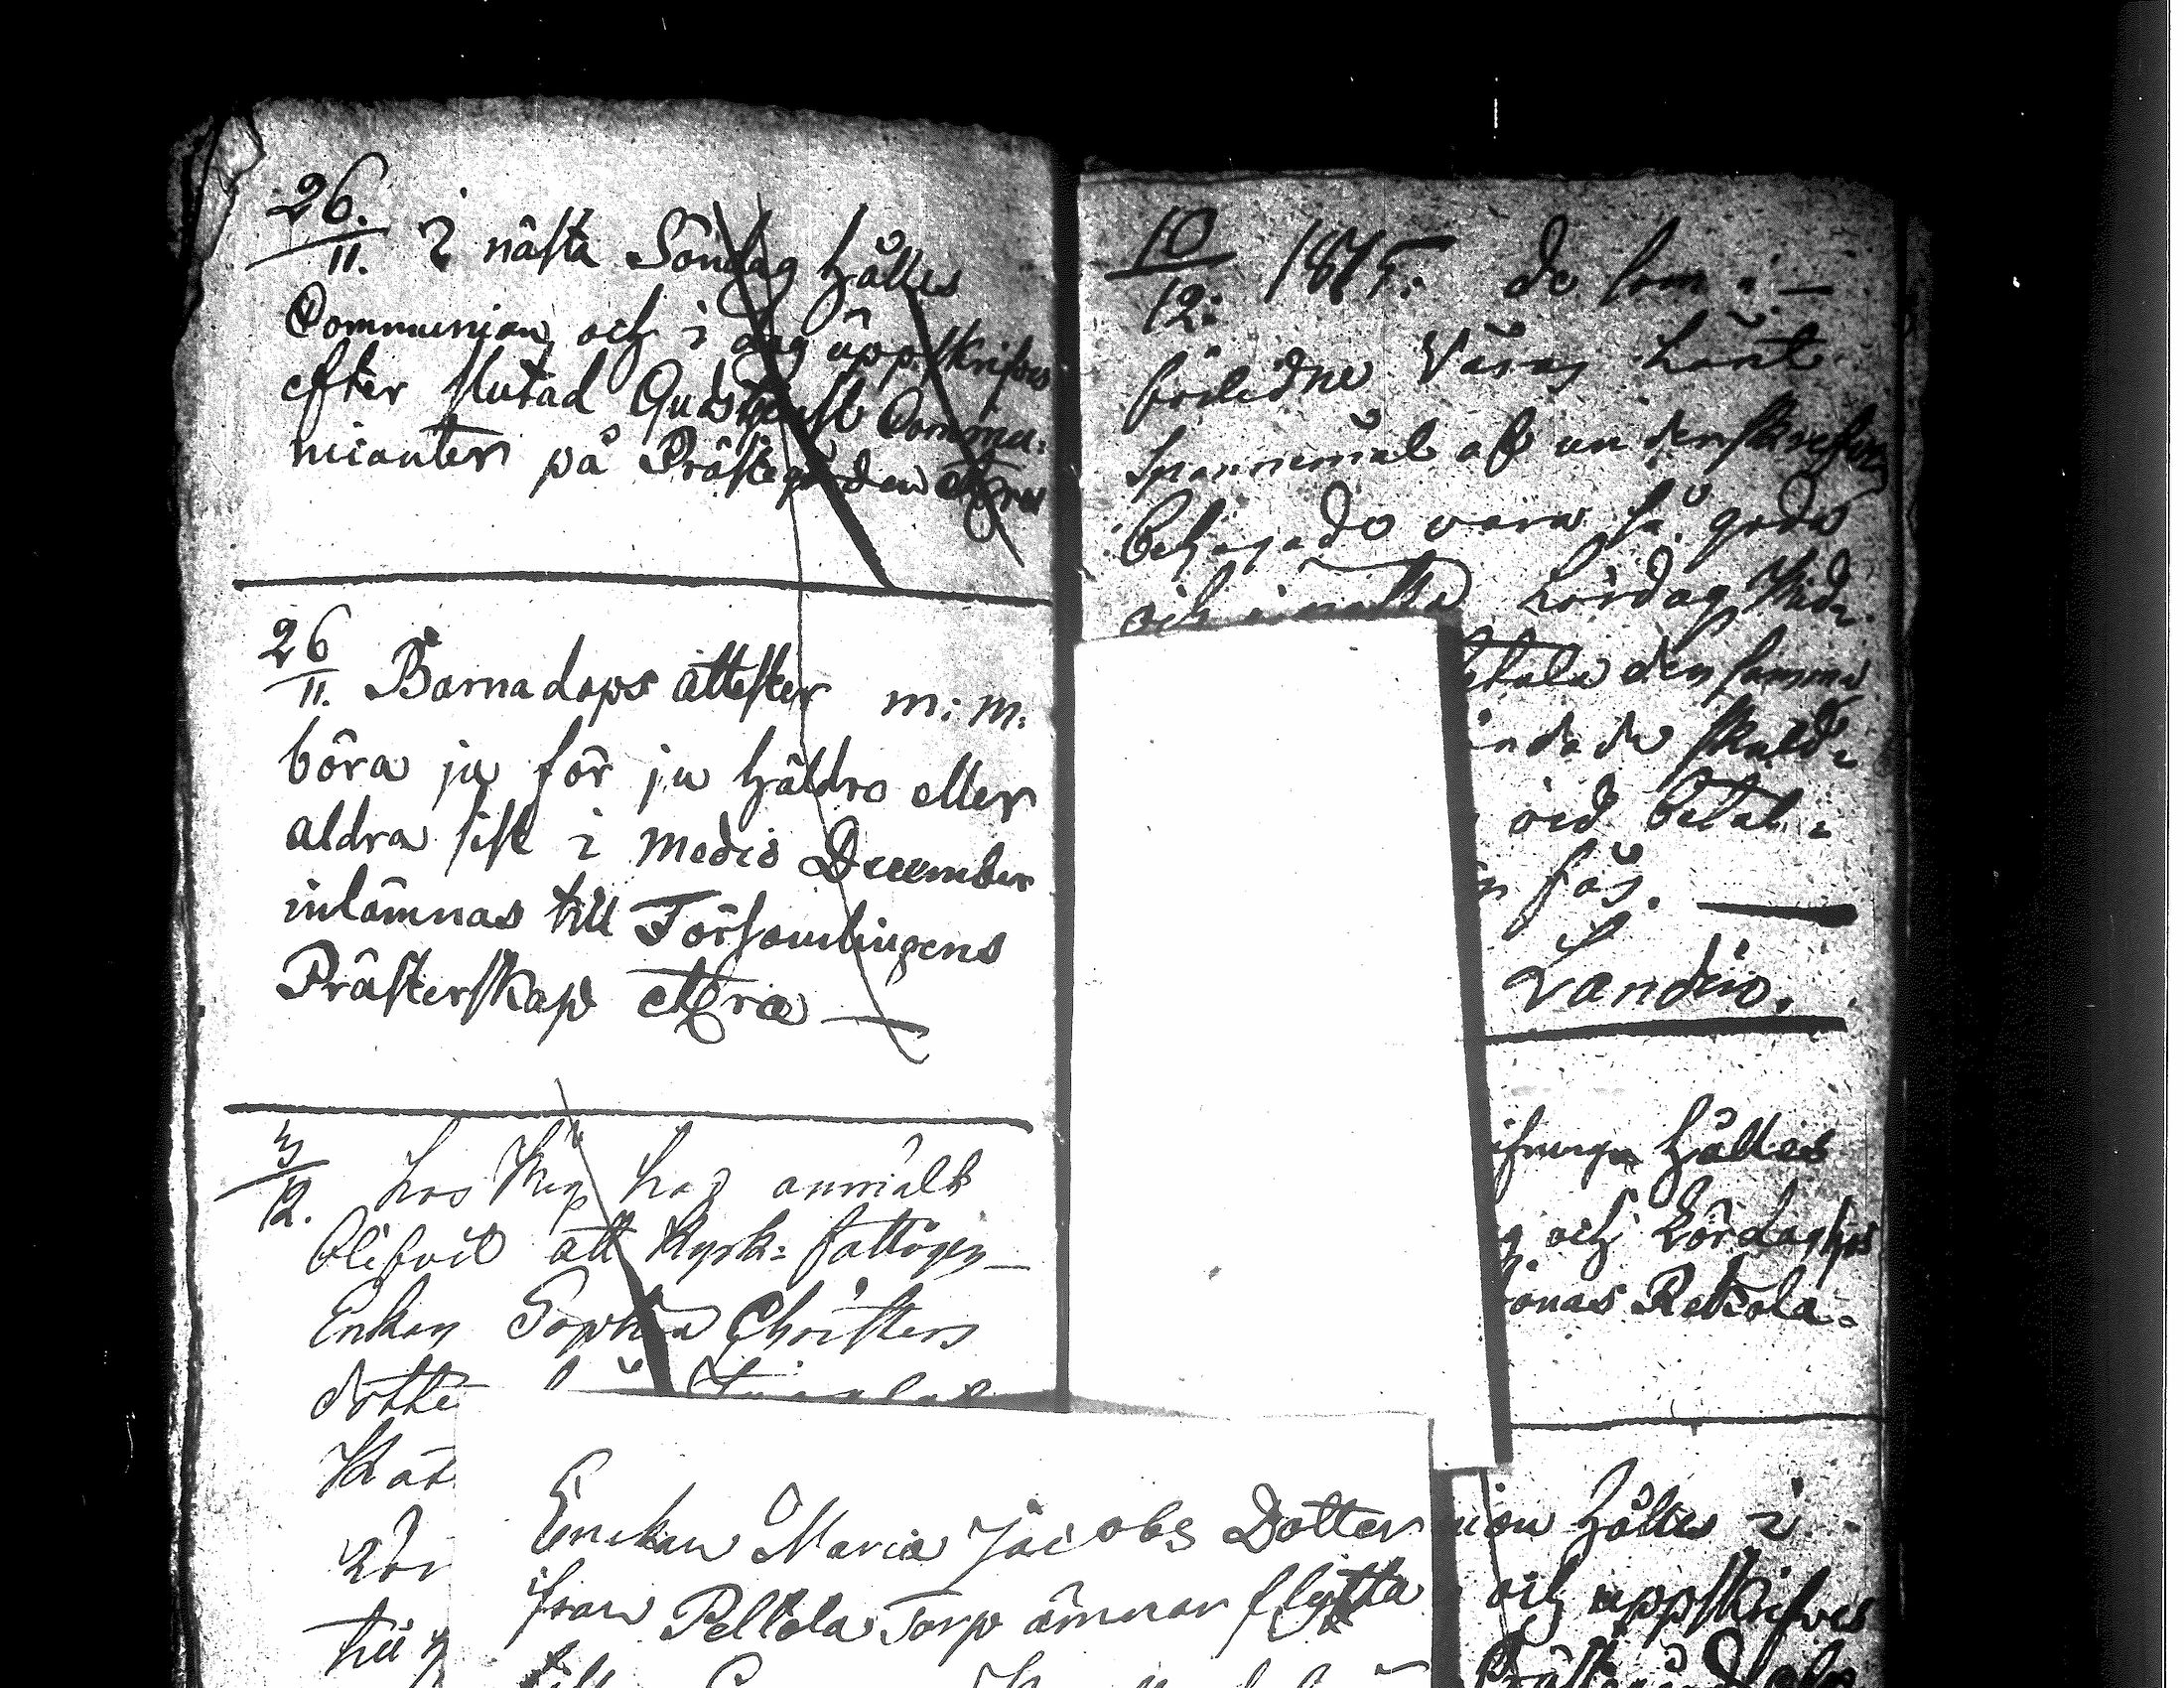 26.
11. I nästa Söndag hålles
Communion, och i dag uppskrifves
efter slutad Gudstjenst Commu:
nicanter på Prästegården etcra
26
11. Barnadops attester m: m:
böra ju för ju häldre eller
aldra sist i medio December
inlämnas till Församlingens
Prästerskap etcra —
3
12. hos mig har anmält
blifvit att Kyrk= fattigen
Enkan Sophia Christers
dotte
Kat
till
Enckan Maria Jacobs Dotter
ifrån Peltola Torp ämnar flytta
10
12: 1875. De som i —
förledne Våras lånt
Spannemål af undenskrefven
behagade vara så goda
och i nästa Lördag
betala den samma
skuld=
vid betal=
får. —
Landén.
hålles
och Lördag hos
Jonas Rekola.
hålles i
och uppskrifves